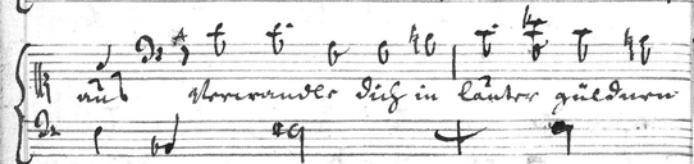 aus Verwandle dich in lauter güldnen